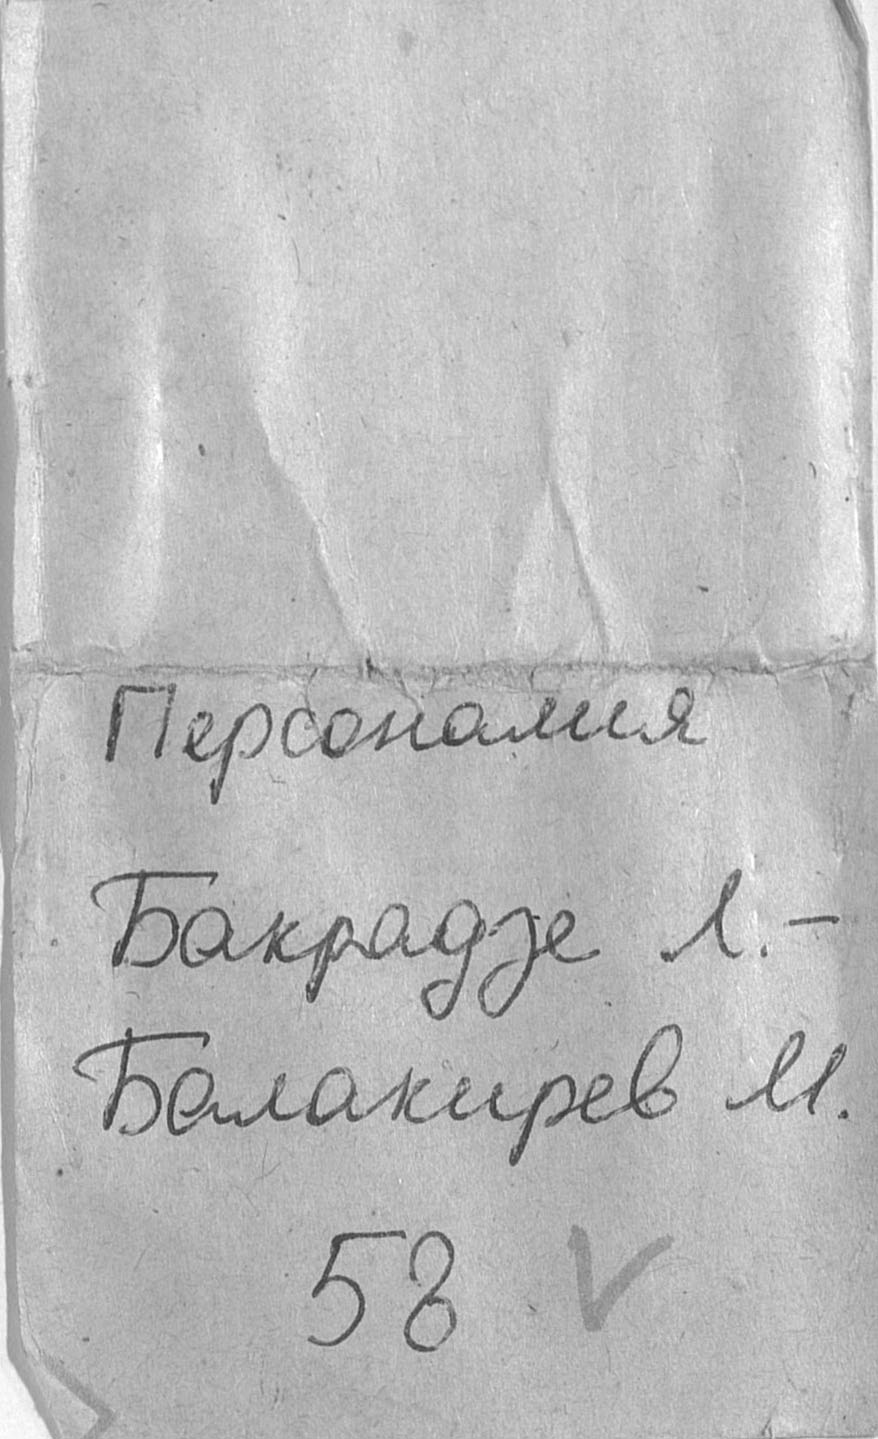 Персоналия
Бакрадзе Л.-
Балакирев М.
58 V